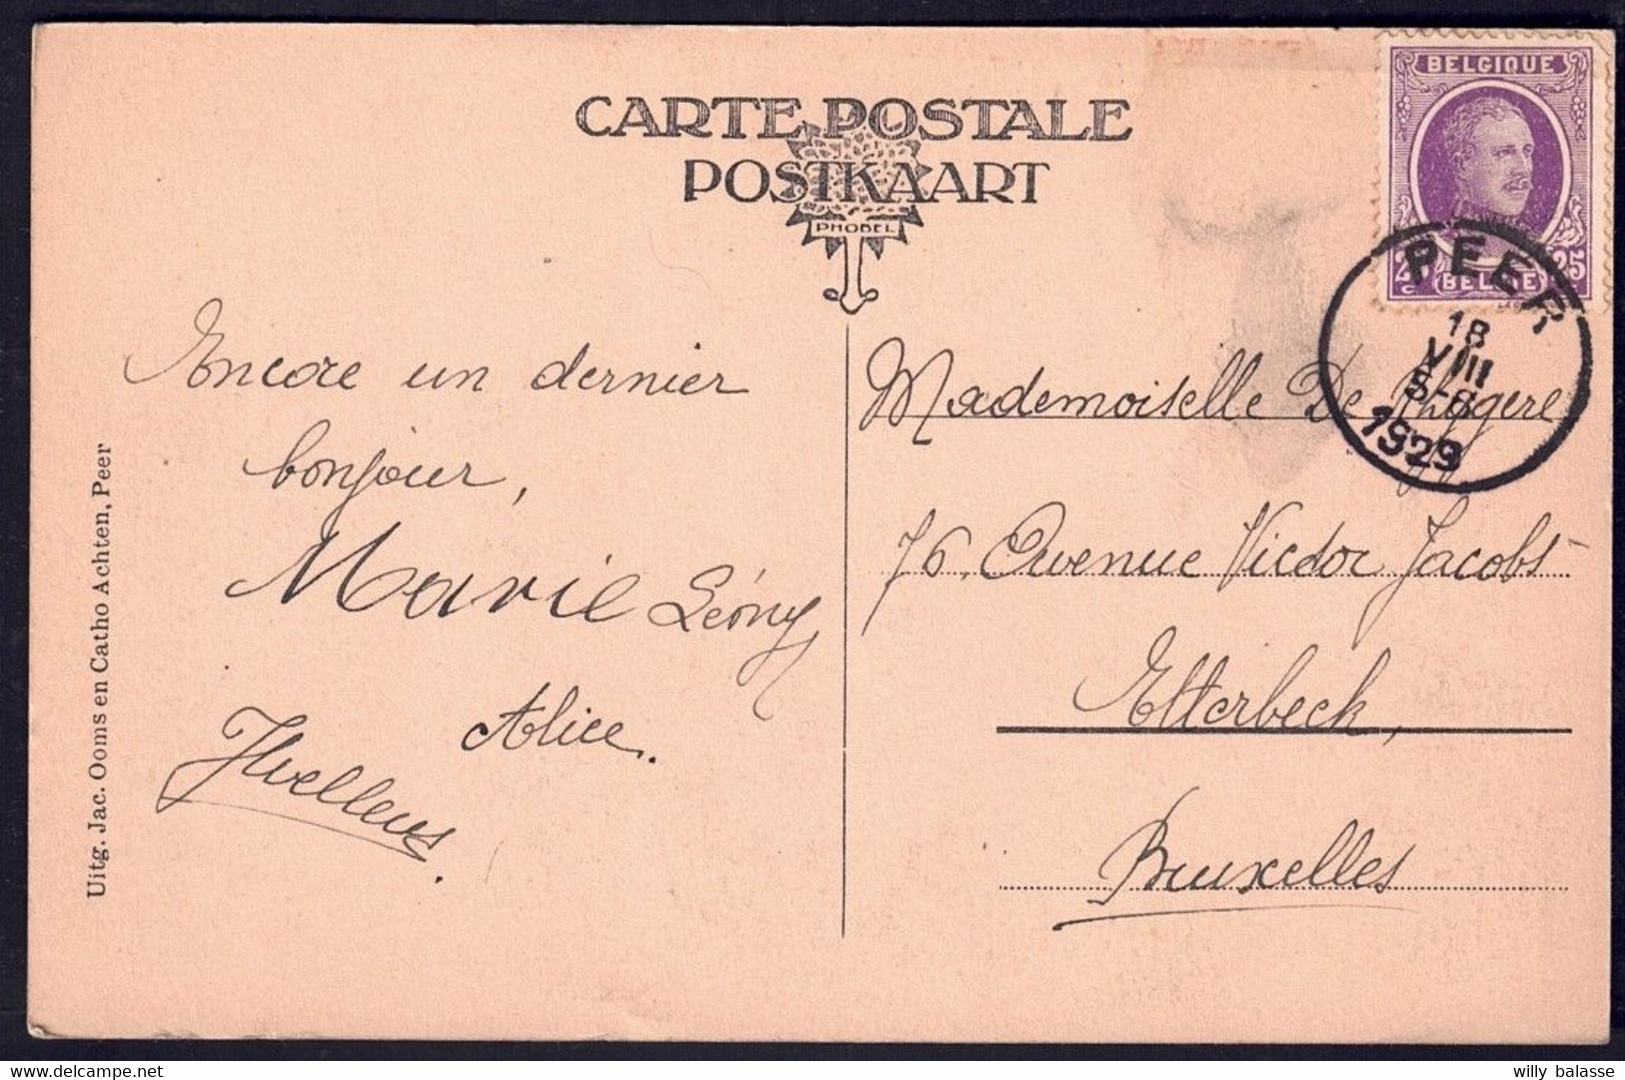 CARTE POSTALE
POSTKAART
PHOBEL
BELGIQUE
25
BELGIE
PEER
18
VIII
1929
Encore un dernier
bonjour,
Marie Léony
Alice.
Uitg. Jac. Ooms en Catho Achten, Peer
Mademoiselle De
76, Avenue Victor Jacobs
Etterbeek,
Bruxelles
willy balasse